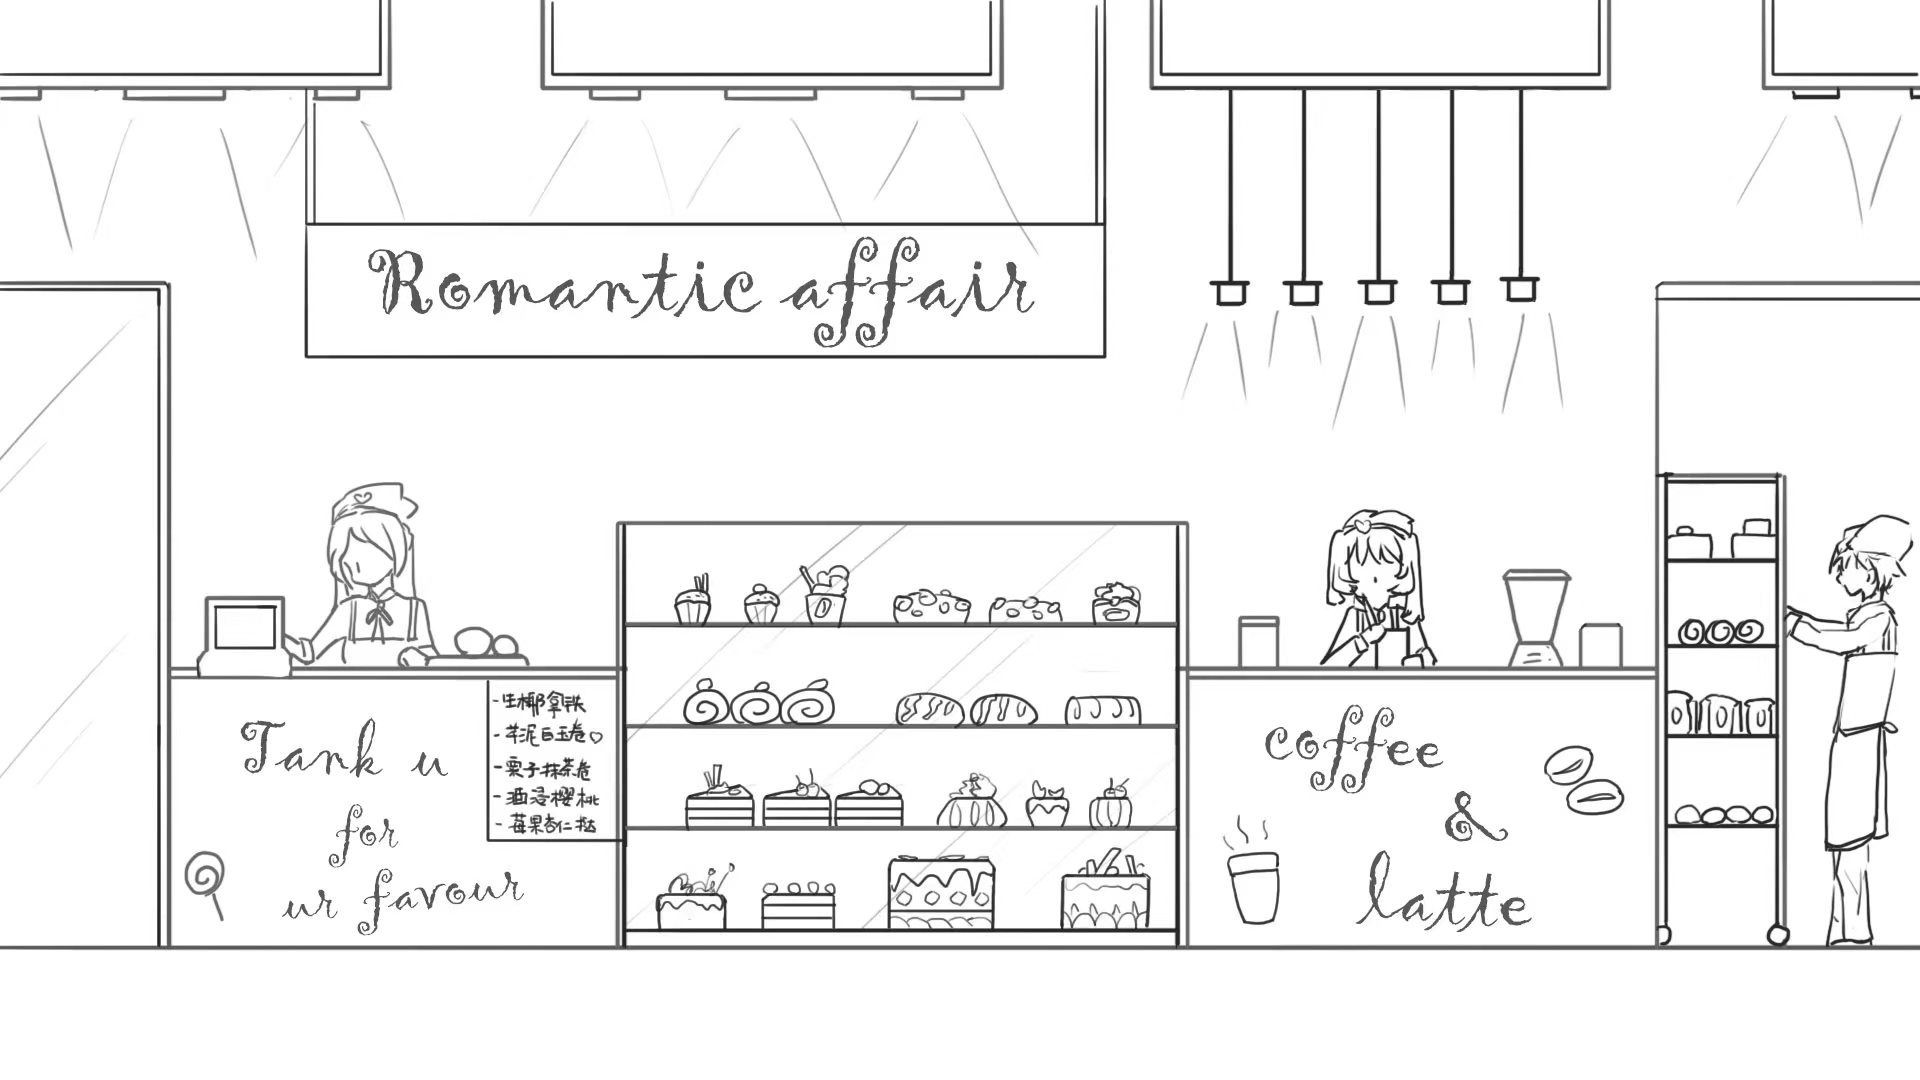 Romantic affair
Tank u
for
ur favour
-生椰拿铁
-芋泥白玉卷♡
-栗子抹茶卷
-酒浸樱桃
-莓果杏仁挞
coffee
&
latte